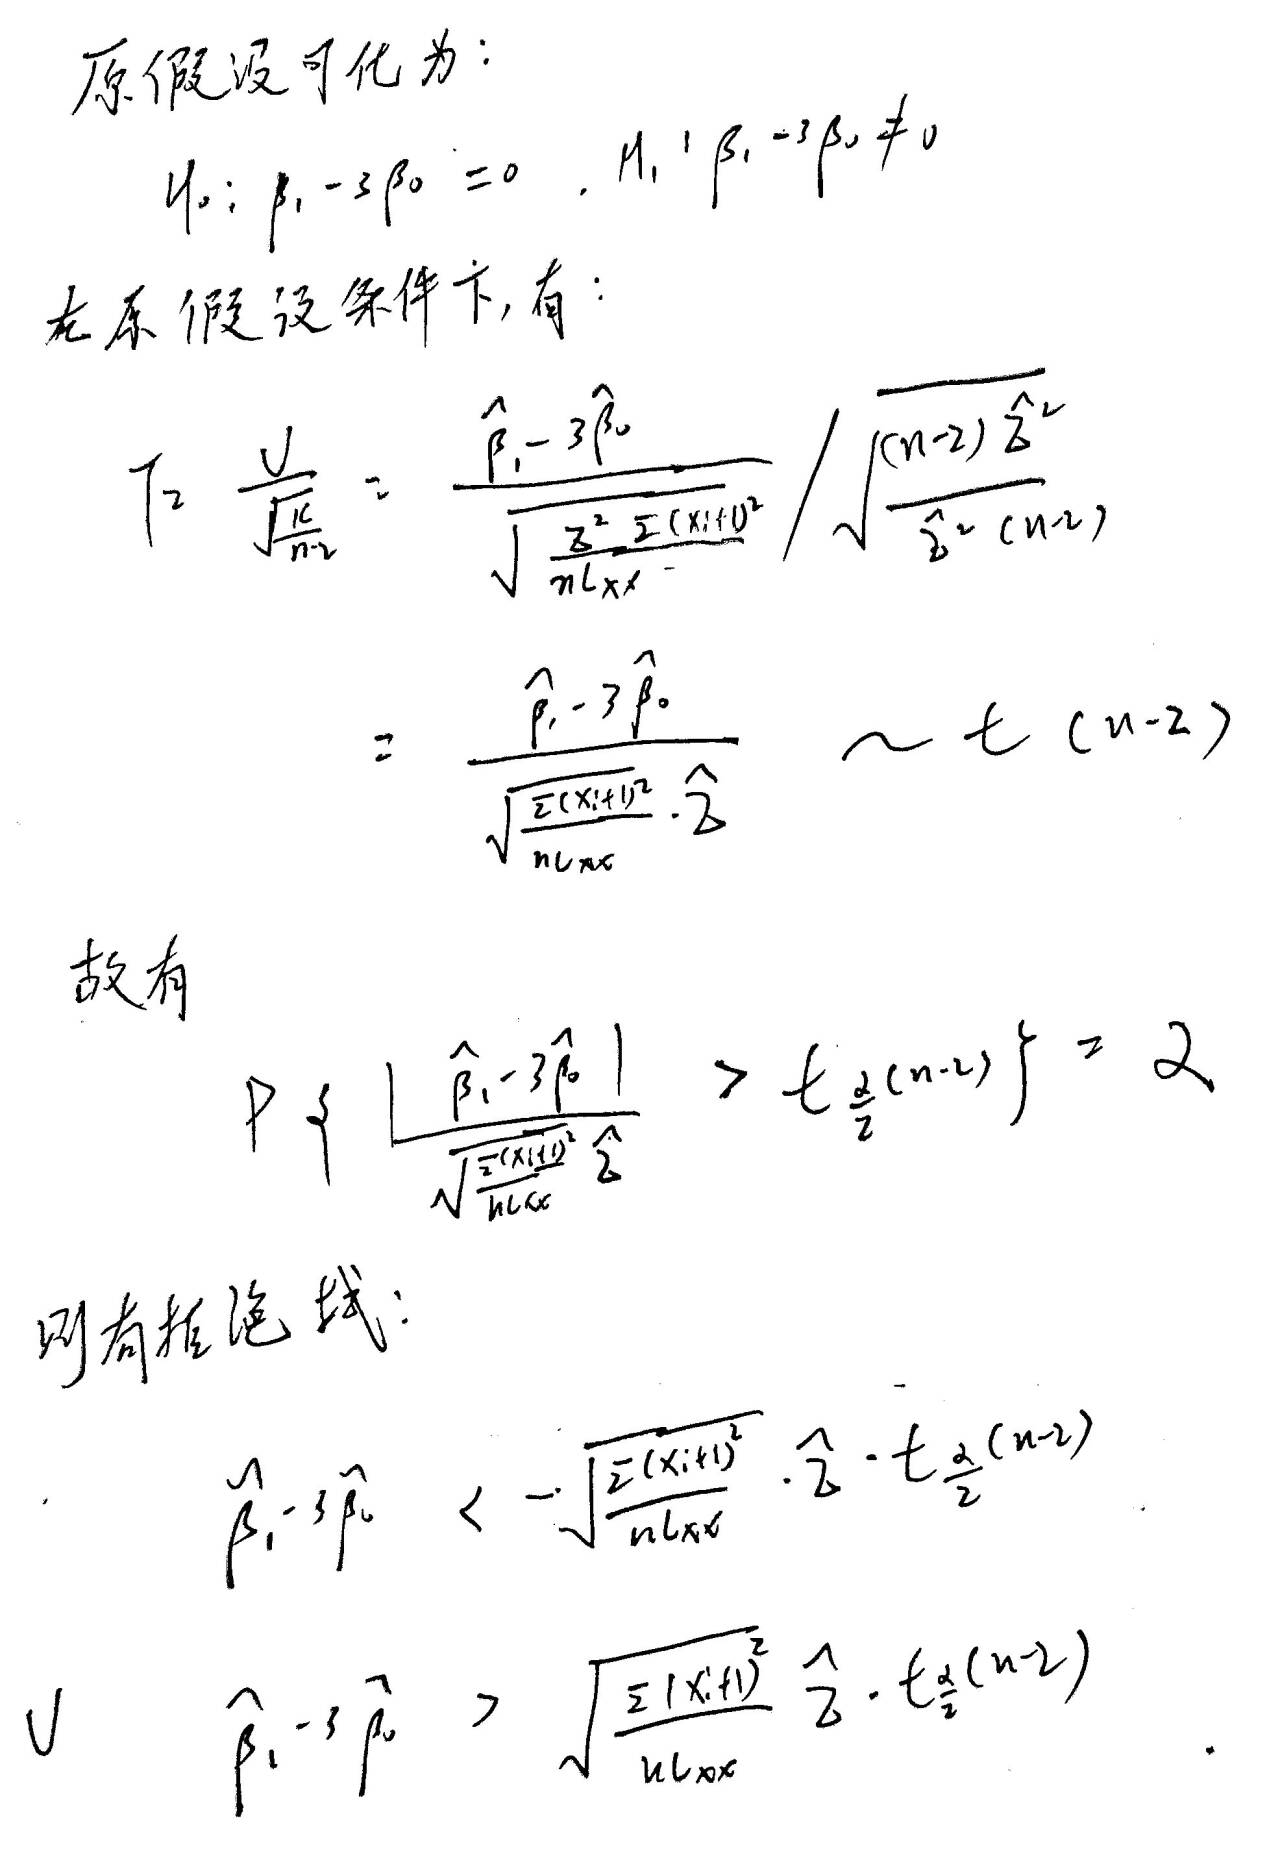 原假设可化为:
H₀: β₁ - 3β₀ = 0 . H₁: β₁ - 3β₀ ≠ 0
在原假设条件下,有:
T = U / √(K/(n-2)) = (β̂₁ - 3β̂₀) / √(σ² Σ(xᵢ+1)² / (nLxx)) / √((n-2) σ̂² / (σ̂² (n-2)))
= (β̂₁ - 3β̂₀) / (√(Σ(xᵢ+1)² / (nLxx)) · σ̂) ~ t (n-2)
故有
P { |β̂₁ - 3β̂₀| / (√(Σ(xᵢ+1)² / (nLxx)) σ̂) > t_{α/2}(n-2) } = α
则有拒绝域:
β̂₁ - 3β̂₀ < -√(Σ(xᵢ+1)² / (nLxx)) · σ̂ · t_{α/2}(n-2)
∪ β̂₁ - 3β̂₀ > √(Σ(xᵢ+1)² / (nLxx)) σ̂ · t_{α/2}(n-2) .